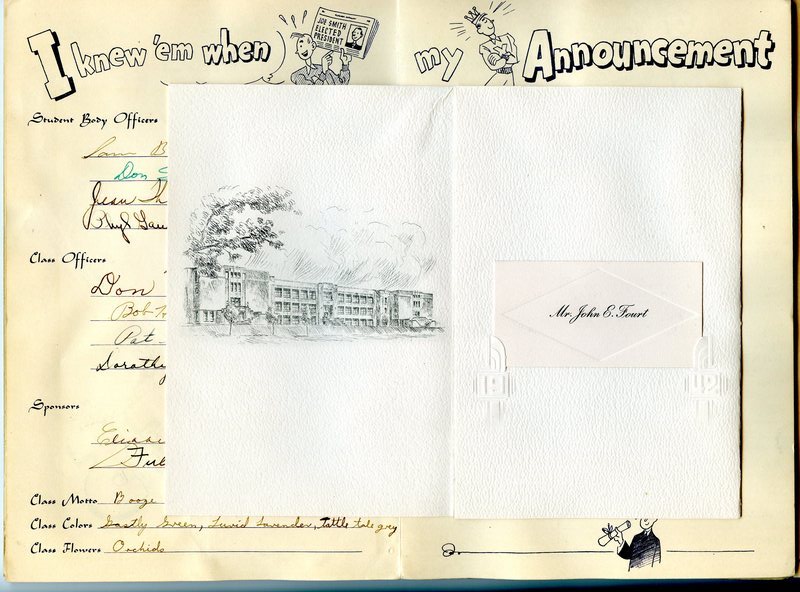 I knew 'em when
JOE SMITH
ELECTED
PRESIDENT
my Announcement
Student Body Officers
Sam B
Don S
Jean Th
Phyl Gau
Class Officers
Don
Bob
Pat
Dorothy
Sponsors
Class Motto Booze
Class Colors Gastly Green, Lurid Lavender, Tattle tale grey
Class Flowers Orchids
Mr. John E. Fourt
19 42